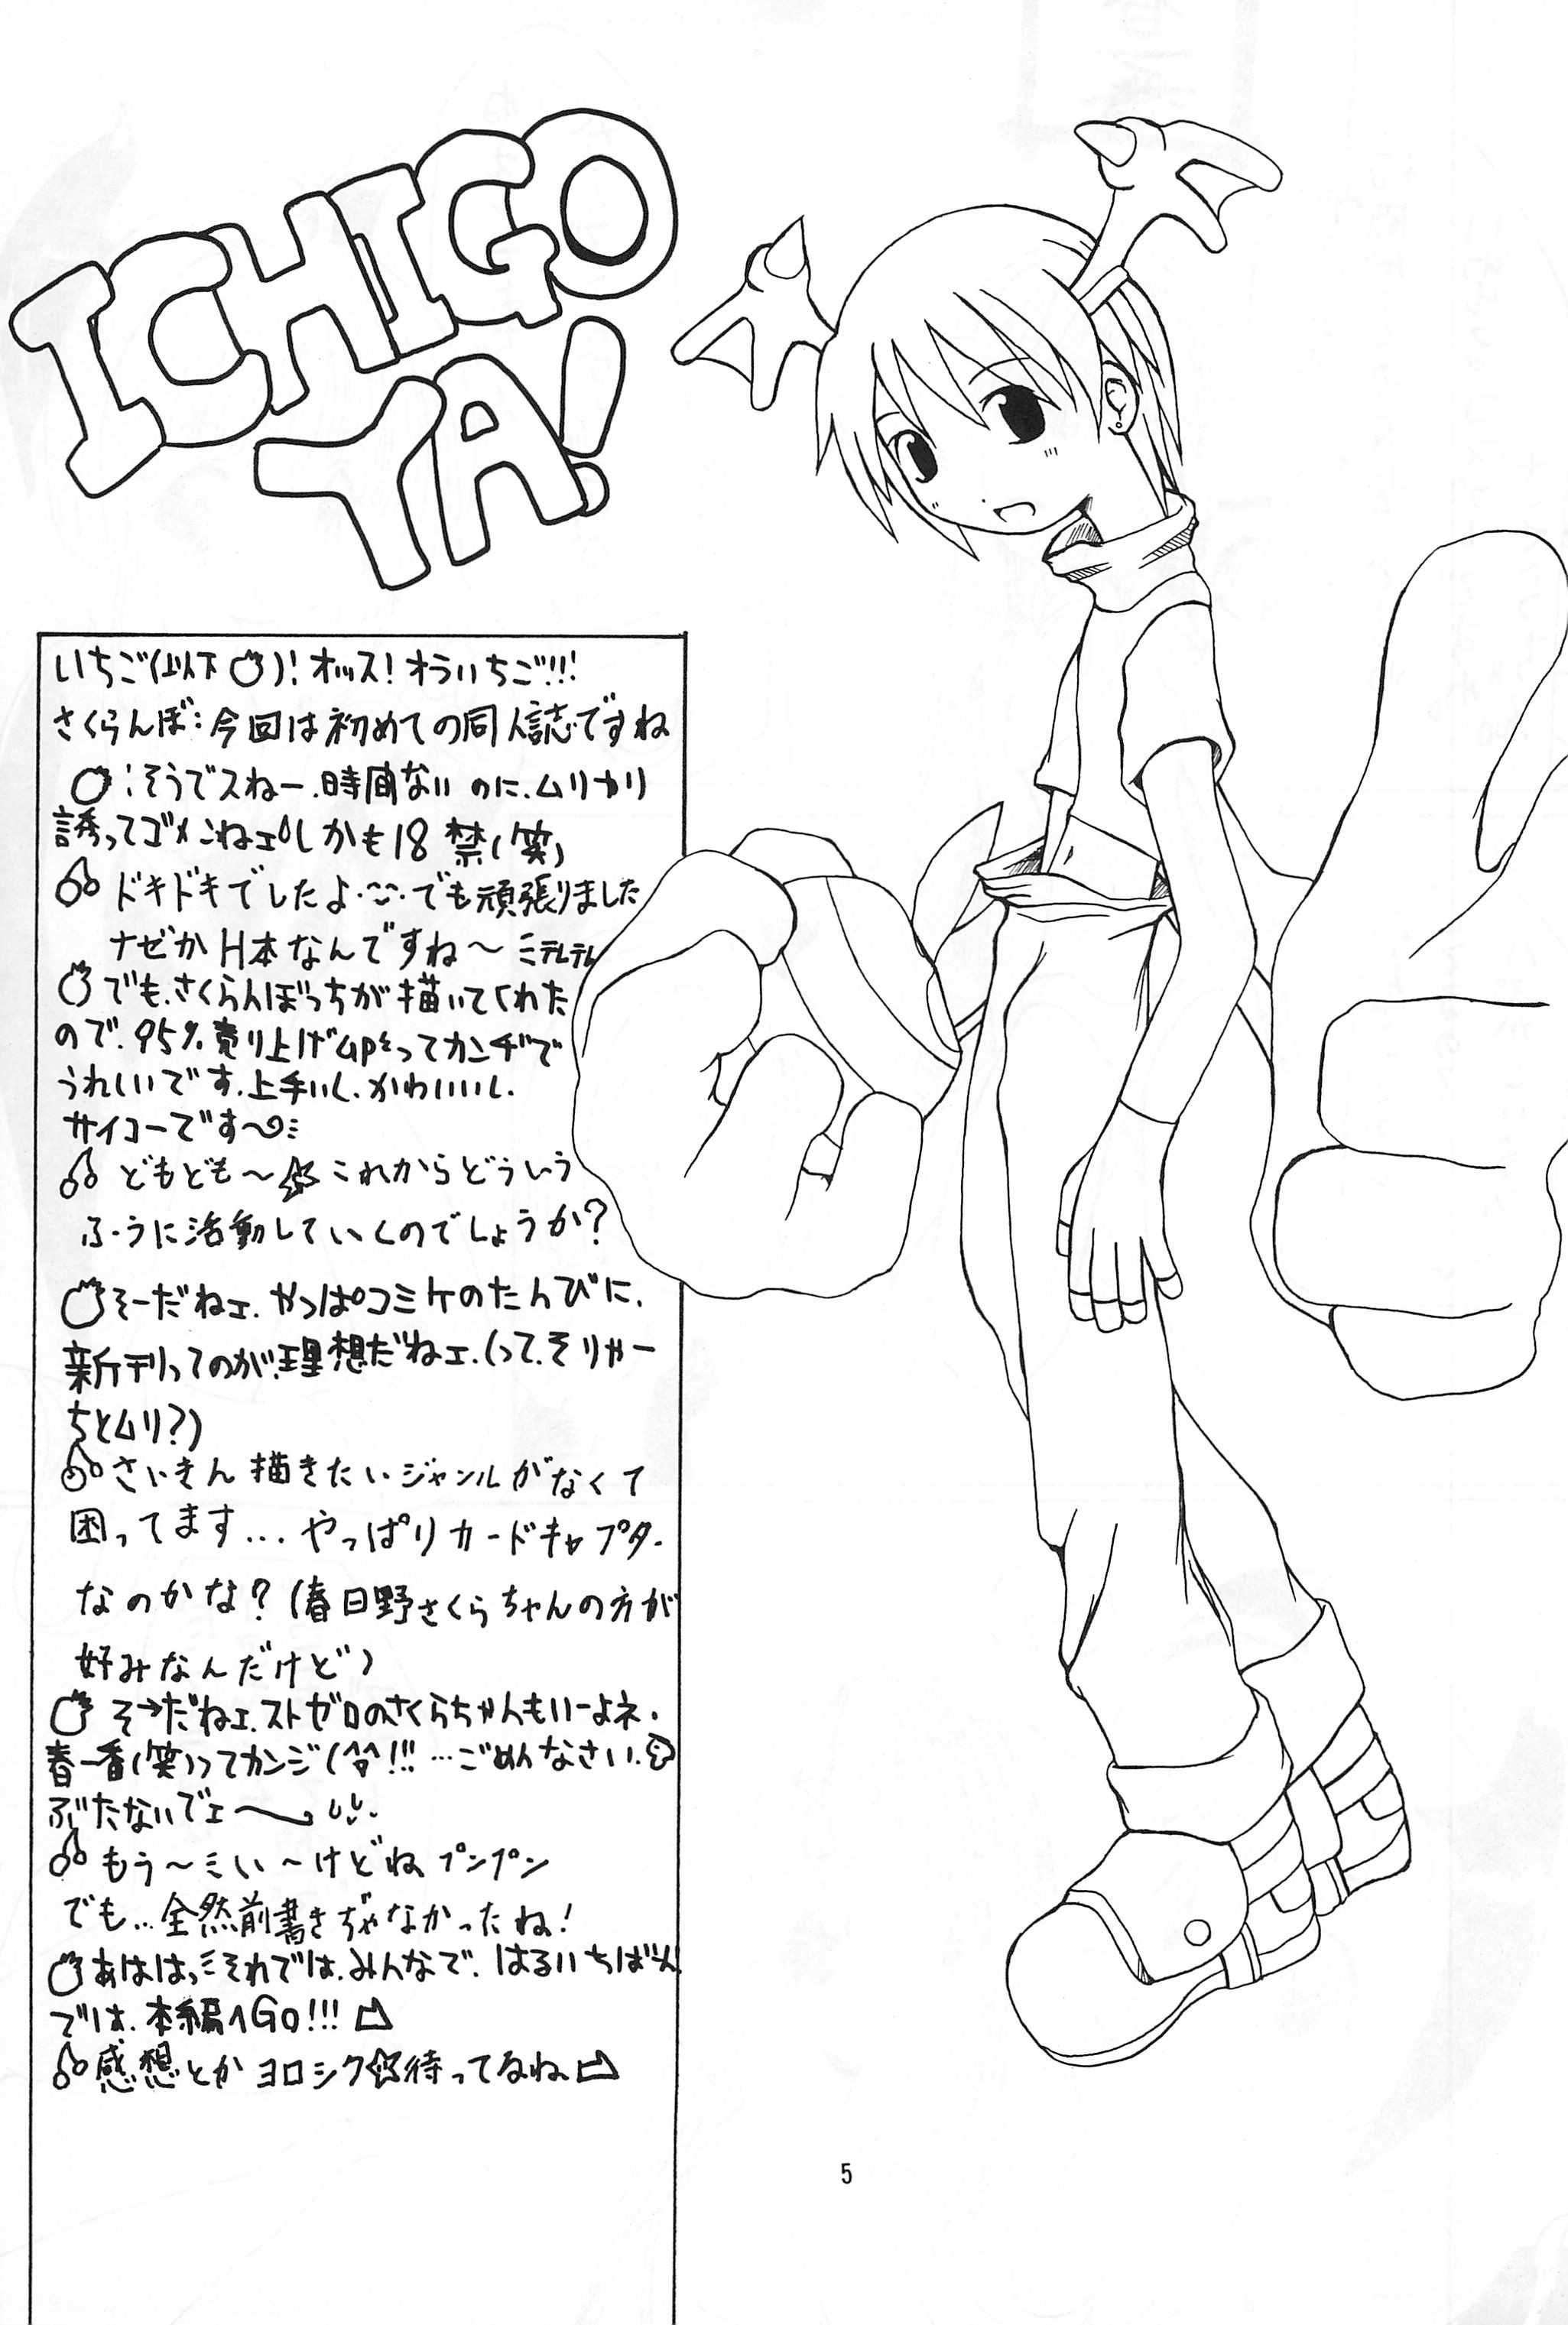 ICHIGO
YA!
いちご(以下 )！オッス！オラいちご!!!
さくらんぼ：今回は初めての同人誌ですね
：そうでスねー．時間ないのに．ムリカリ
誘ってゴメンねェ しかも18禁(笑)
ドキドキでしたよ でも頑張りました
ナゼかH本なんですね〜
でも．さくらんぼっちが描いてくれた
ので．95%売り上げupってカンヂで
うれしいです．上手いし．かわいいし．
サイコーです〜
どもども〜☆これからどういう
ふうに活動していくのでしょうか？
そーだねェ．やっぱコミケのたんびに．
新刊ってのが．理想だねェ．(って．そりゃー
ちとムリ？)
さいきん描きたいジャンルがなくて
困ってます...やっぱりカードキャプター
なのかな？(春日野さくらちゃんの方が
好みなんだけど)
そーだねェ．ストゼロのさくらちゃんもいーよネ．
春一番(笑)ってカンジ(^^)!!! …ごめんなさい．
ぶたないでェ〜
もう〜 い〜けどね プンプン
でも...全然前書きぢゃなかったね！
あははっ それでは．みんなで．はるいちばん
では．本編へGO!!!
感想とかヨロシク☆待ってるね
5